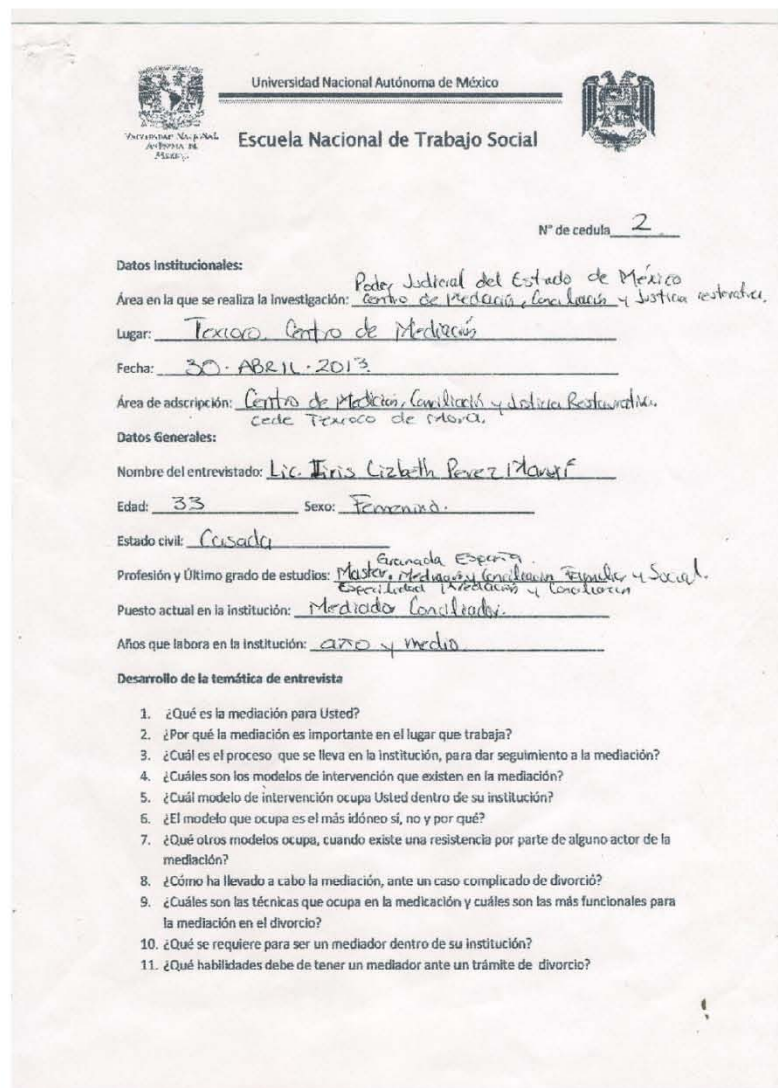 Universidad Nacional Autónoma de México
UNIVERSIDAD NACIONAL
AUTÓNOMA DE
MÉXICO
Escuela Nacional de Trabajo Social
N° de cedula 2
Datos Institucionales:
Poder Judicial del Estado de México
Área en la que se realiza la investigación: Centro de Mediación, Conciliación y Justicia restaurativa.
Lugar: Texcoco, Centro de Mediación
Fecha: 30 - ABRIL - 2013
Área de adscripción: Centro de Mediación, Conciliación y Justicia Restaurativa.
cede Texcoco de Mora.
Datos Generales:
Nombre del entrevistado: Lic. Iris Lizbeth Perez
Edad: 33 Sexo: Femenino.
Estado civil: Casada
Granada España.
Profesión y Último grado de estudios: Master. Mediación y Conciliación Familiar y Social.
Especialidad Mediación y Conciliación
Puesto actual en la institución: Mediador Conciliador.
Años que labora en la institución: año y medio
Desarrollo de la temática de entrevista
1. ¿Qué es la mediación para Usted?
2. ¿Por qué la mediación es importante en el lugar que trabaja?
3. ¿Cuál es el proceso que se lleva en la institución, para dar seguimiento a la mediación?
4. ¿Cuáles son los modelos de intervención que existen en la mediación?
5. ¿Cuál modelo de intervención ocupa Usted dentro de su institución?
6. ¿El modelo que ocupa es el más idóneo sí, no y por qué?
7. ¿Qué otros modelos ocupa, cuando existe una resistencia por parte de alguno actor de la
mediación?
8. ¿Cómo ha llevado a cabo la mediación, ante un caso complicado de divorció?
9. ¿Cuáles son las técnicas que ocupa en la medicación y cuáles son las más funcionales para
la mediación en el divorcio?
10. ¿Qué se requiere para ser un mediador dentro de su institución?
11. ¿Qué habilidades debe de tener un mediador ante un trámite de divorcio?